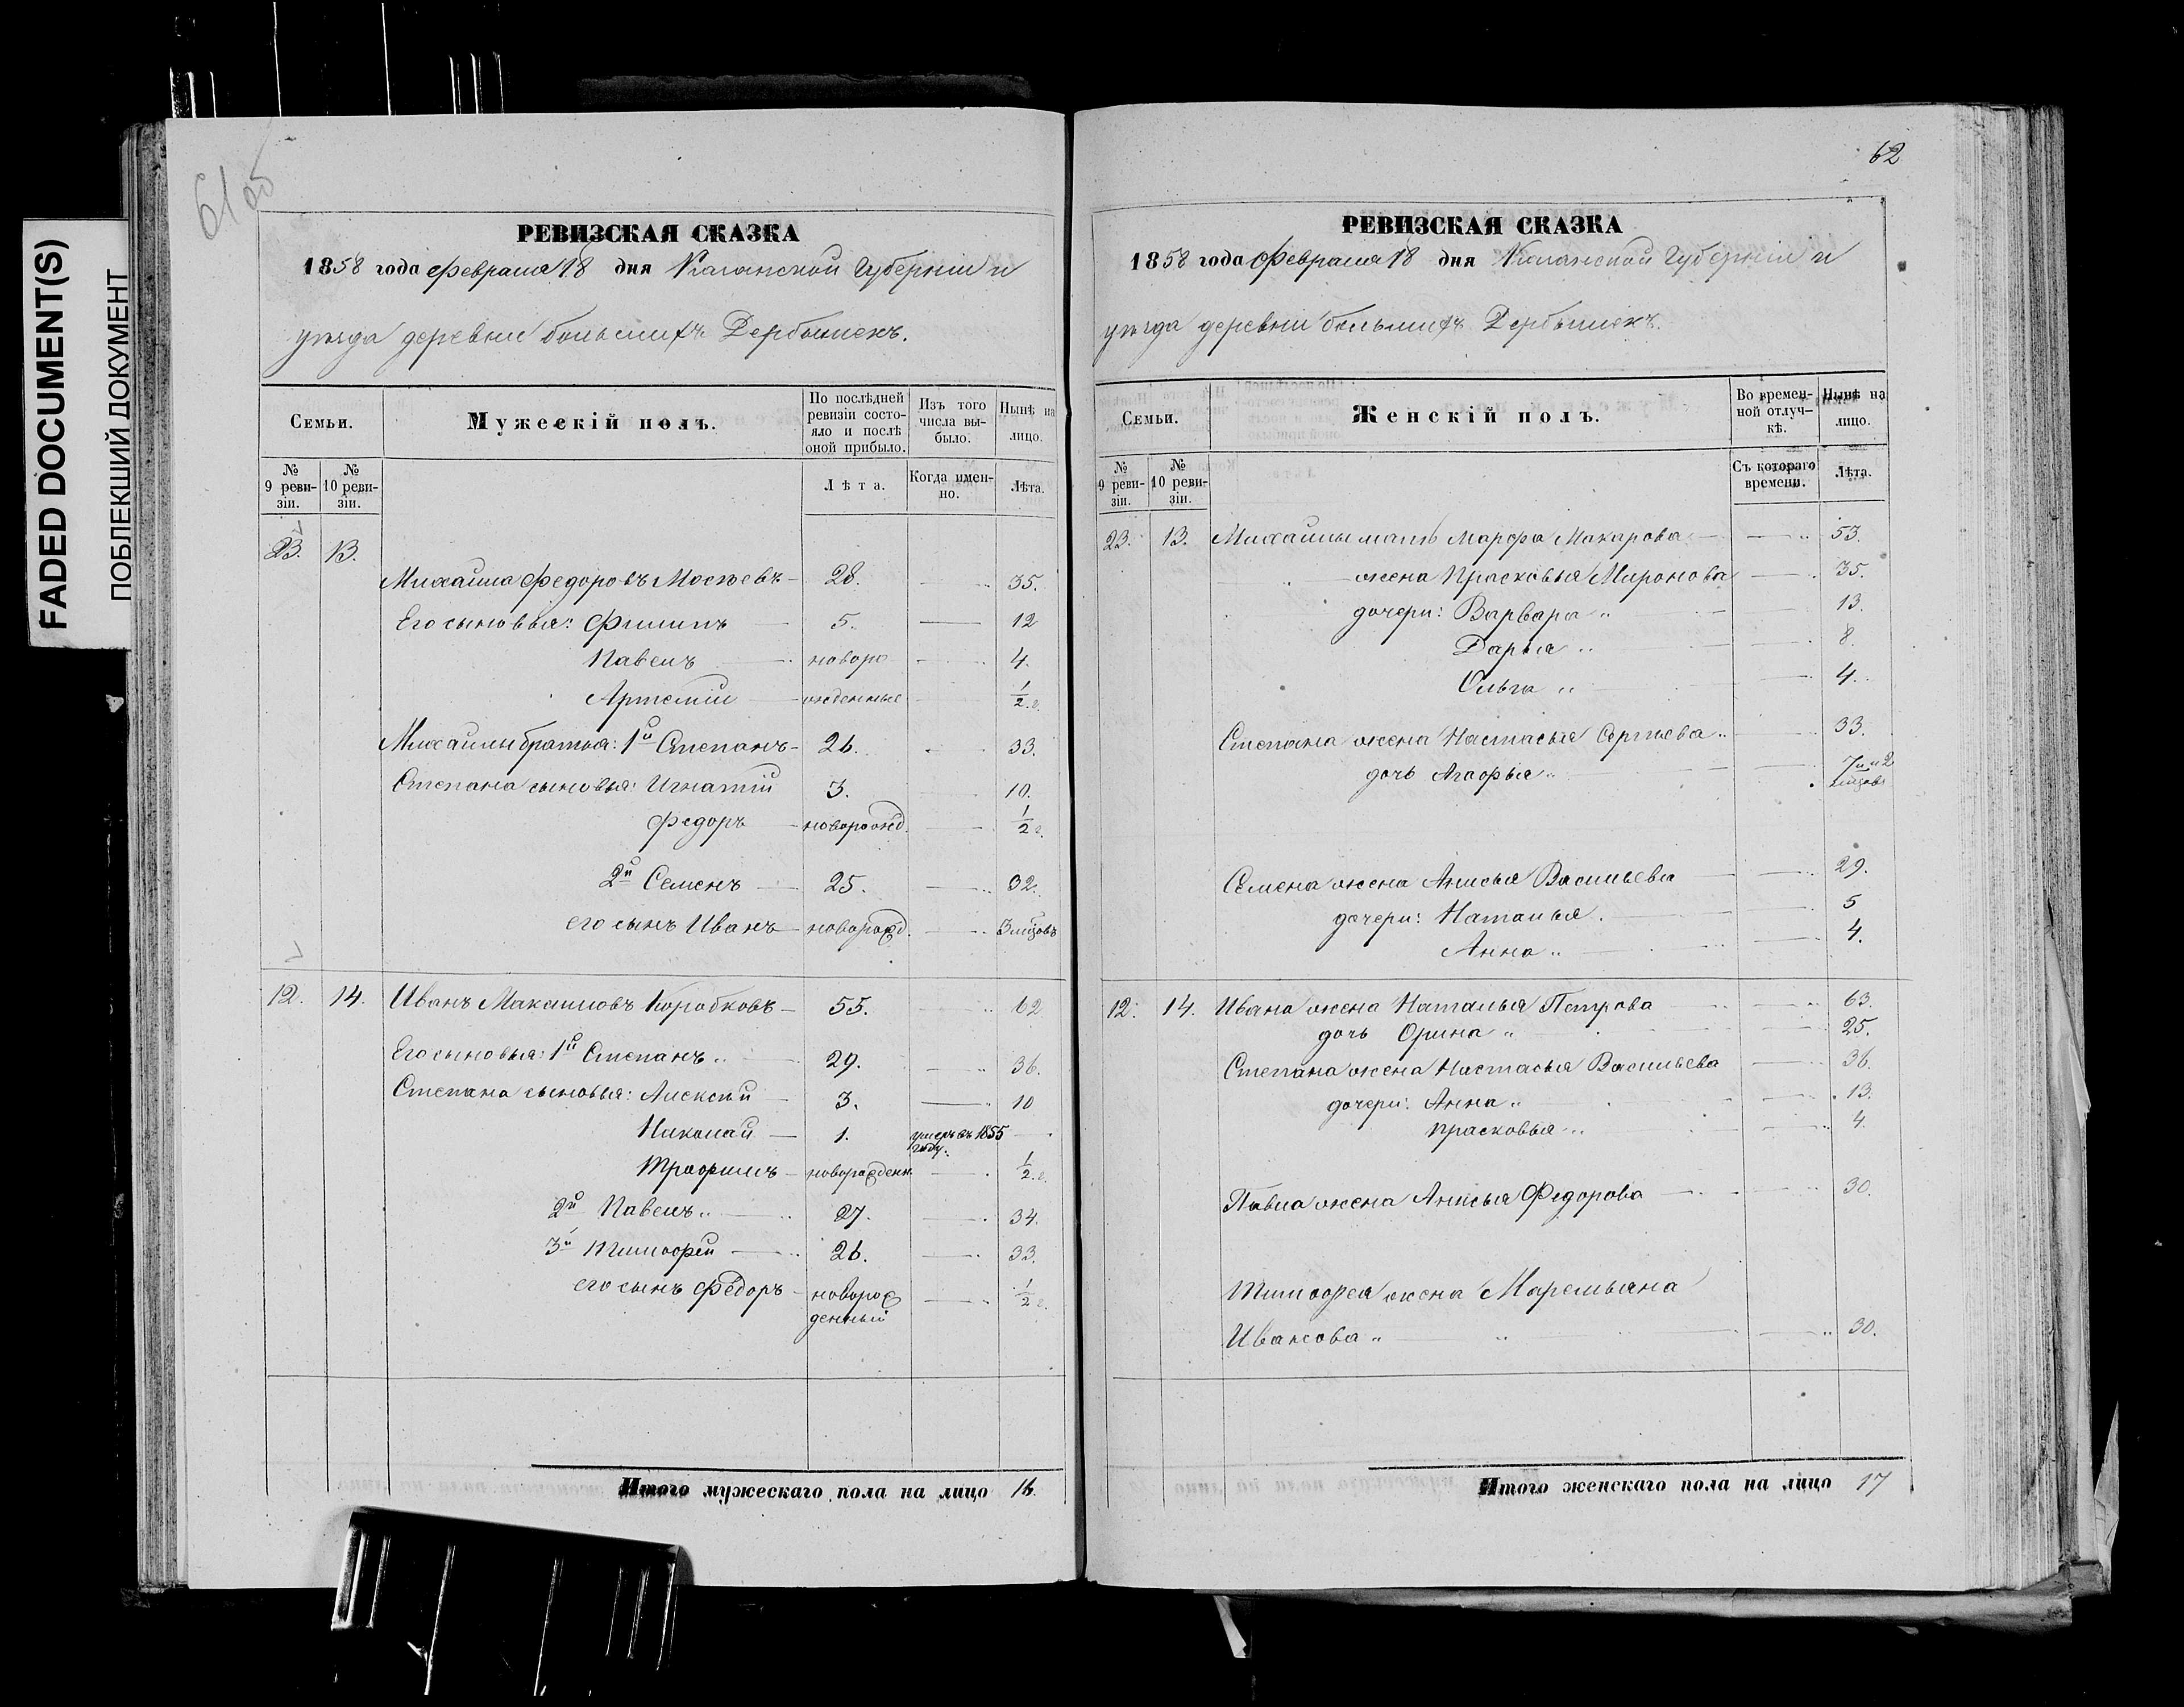 FADED DOCUMENT(S)
ПОБЛЕКШИЙ ДОКУМЕНТ
61об
РЕВИЗСКАЯ СКАЗКА
1858 года Февраля 18 дня Казанской Губерніи и
уѣзда деревни большихъ Дербышекъ.
Семьи.
Мужескій полъ.
По послѣдней ревизіи состояло и послѣ оной прибыло.
Изъ того числа выбыло.
Нынѣ на лицо.
№ 9 ревизіи.
№ 10 ревизіи.
Лѣта.
Когда именно.
Лѣта.
23. 13.
Михайла Федоровъ Мосѣевъ 28. 35.
Его сыновья: Филипъ 5. 12
Павелъ новоро 4.
Артемій жденные 1/2 г.
Михайлы братья: 1й Степанъ 26. 33.
Степана сыновья: Игнатій 3. 10.
Федоръ новорожд. 1/2 г.
2й Семенъ 25. 32.
его сынъ Иванъ новорожд. 3 мѣсцовъ
12. 14. Иванъ Максимовъ Коробковъ 55. 62
Его сыновья: 1й Степанъ 29. 36.
Степана сыновья: Алексѣй 3. 10
Николай 1. умеръ въ 1855 году.
Трофимъ новорожденн. 1/2 г.
2й Павелъ 27. 34.
3й Тимофей 26. 33.
его сынъ Федоръ новорож 1/2 г.
денный
Итого мужескаго пола на лицо 16.
62
РЕВИЗСКАЯ СКАЗКА
1858 года Февраля 18 дня Казанской Губерніи и
уѣзда деревни большихъ Дербышекъ.
Семьи.
Женскій полъ.
Во временной отлучкѣ.
Нынѣ на лицо.
№ 9 ревизіи.
№ 10 ревизіи.
Съ котораго времени.
Лѣта.
23. 13. Михайлы мать Марфа Макарова 53.
жена Прасковья Миронова 35.
дочери: Варвара 13.
Дарья 8.
Ольга 4.
Степана жена Настасья Сергѣева 33.
дочь Агафья 7 и 2
мѣсцовъ
Семена жена Анисья Васильева 29.
дочери: Наталья 5
Анна 4.
12. 14. Ивана жена Наталья Петрова 63.
дочь Орина 25.
Степана жена Настасья Васильева 36.
дочери: Анна 13.
Прасковья 4.
Павла жена Анисья Федорова 30.
Тимофея жена Маремьяна
Иванова 30.
Итого женскаго пола на лицо 17